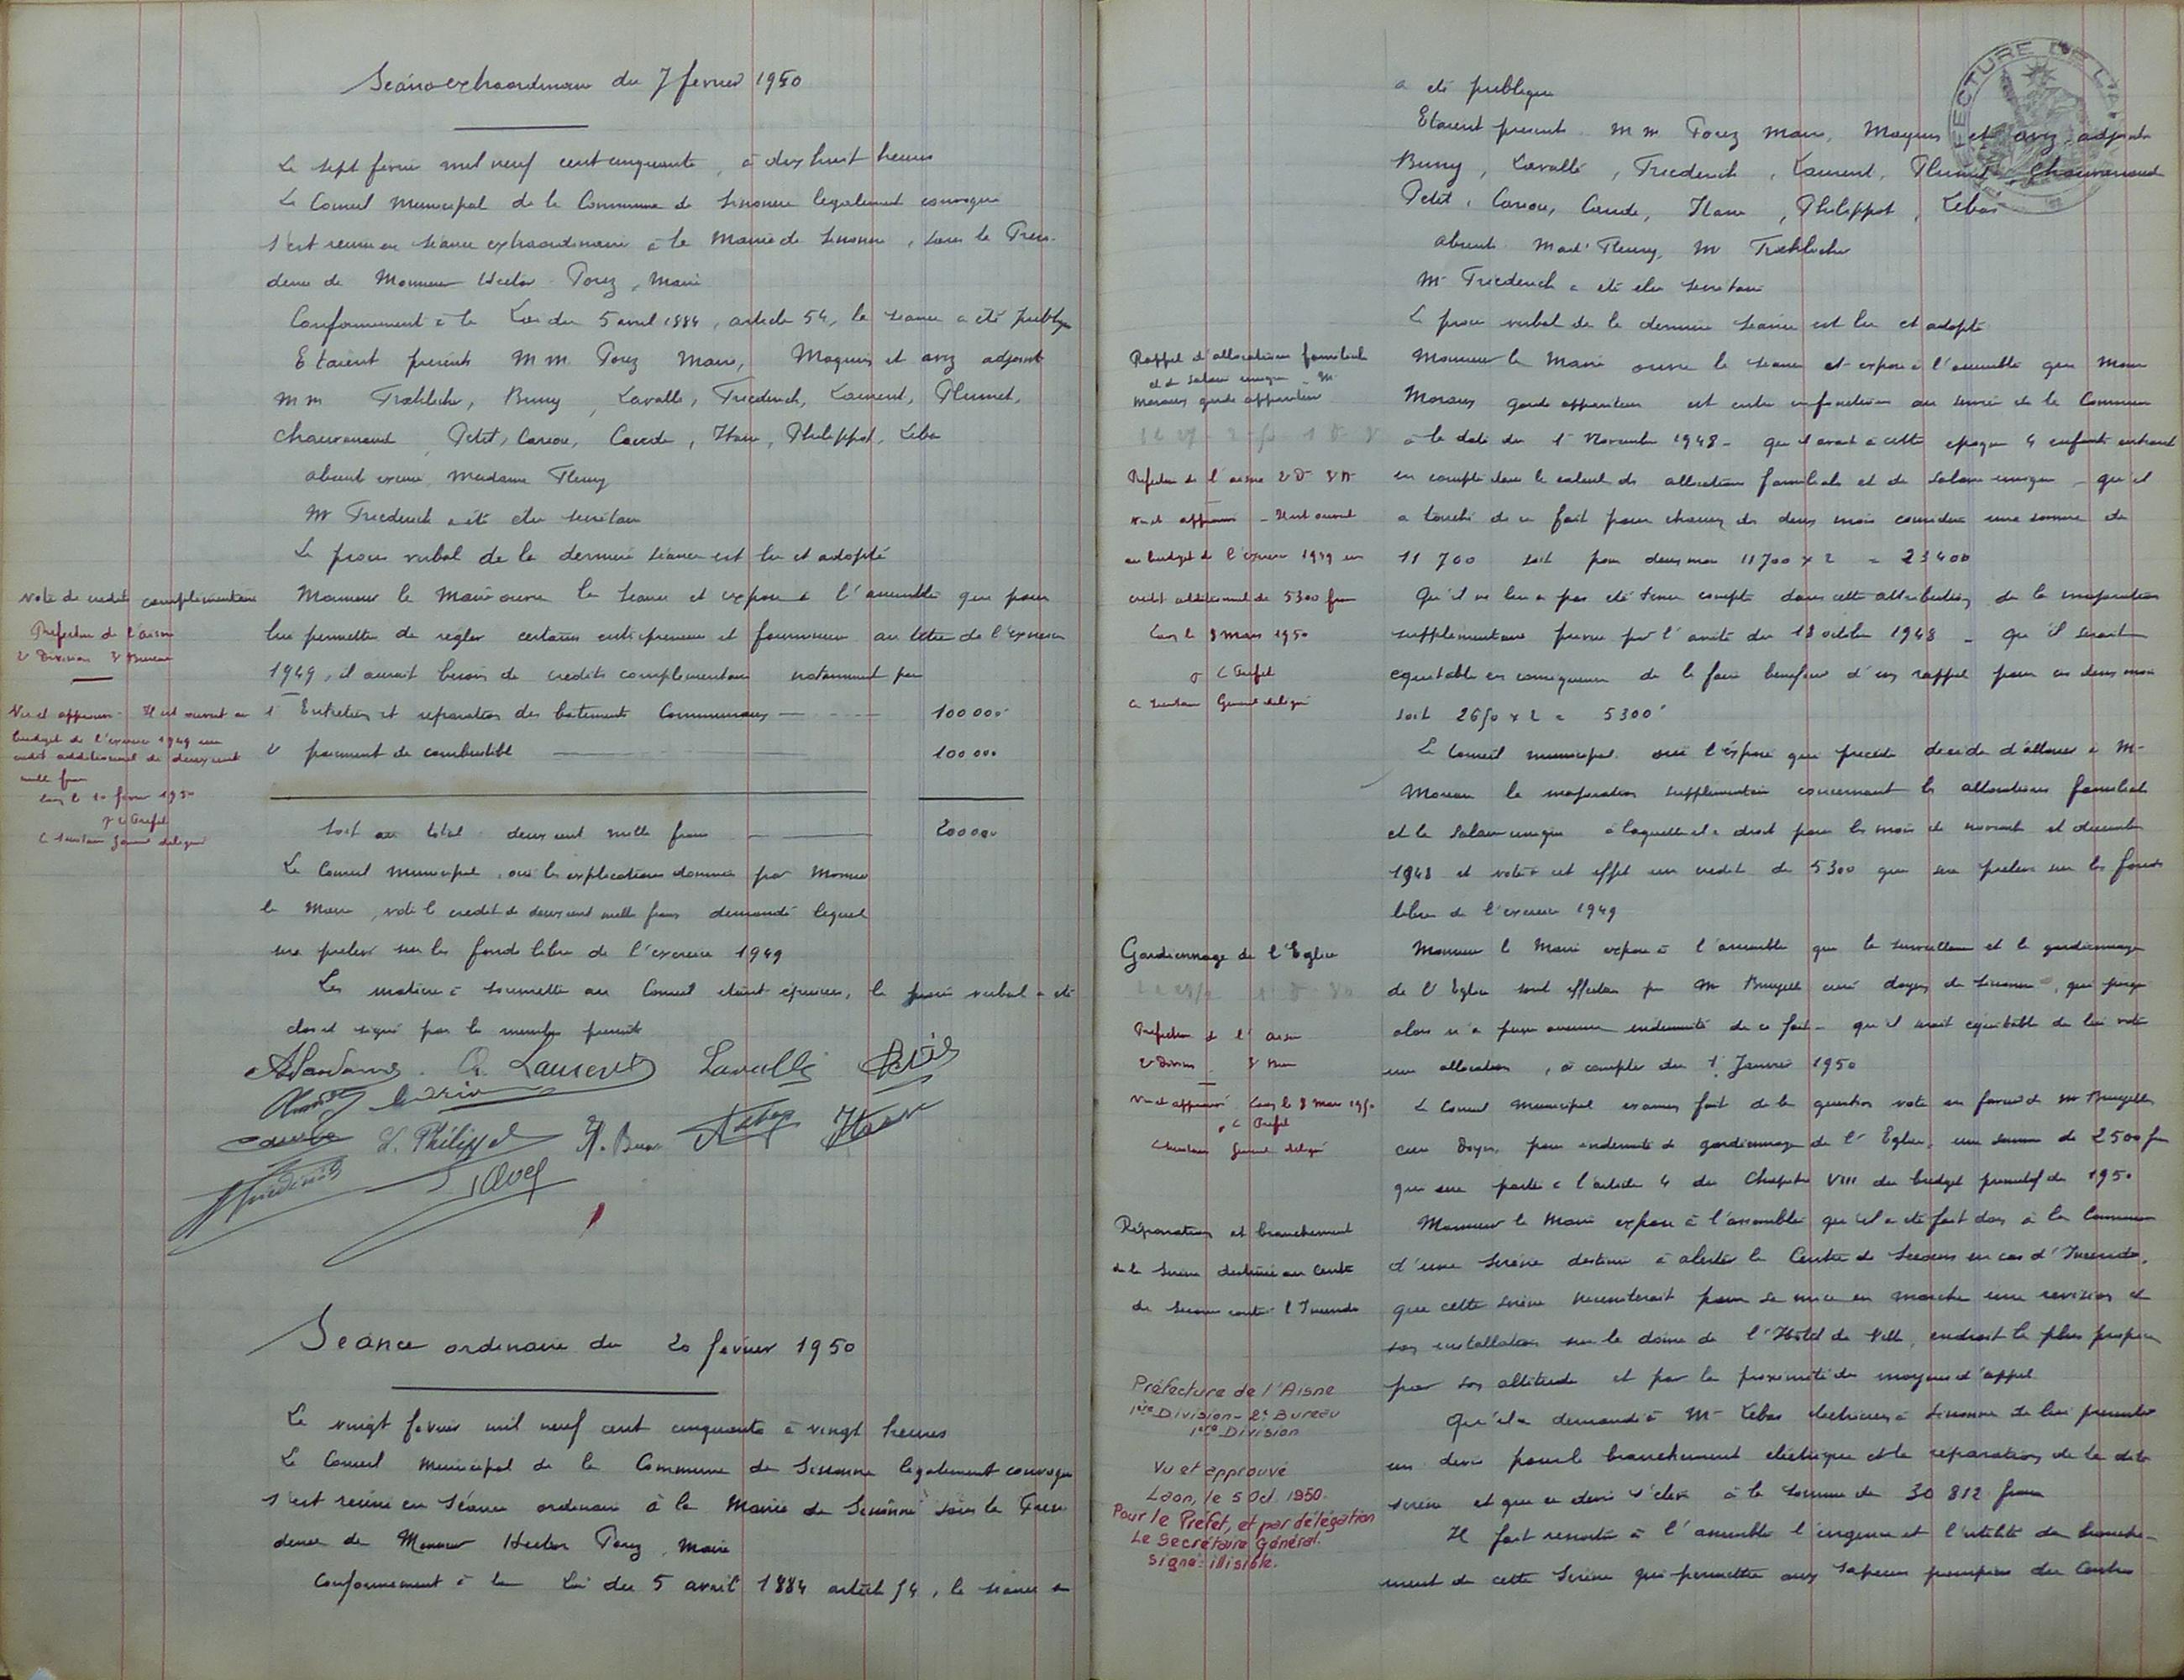 Séance extraordinaire du 7 février 1950
Le sept février mil neuf cent cinquante, à dix huit heures
Le Conseil Municipal de la Commune de Sissonne légalement convoqué
s'est réuni en séance extraordinaire à la Mairie de Sissonne, sous la Prési-
dence de Monsieur Hector Porez, Maire
Conformément à la Loi du 5 avril 1884, article 54, la séance a été publique
Etaient présents M M. Porez Maire, et adjoint
M M Buny, Lavalle, Friederich, Laurent, Plumet,
Petit, Philippot, Lebas
absent excusé Madame Fleury
Mr Friederich a été élu secrétaire
Le procès verbal de la dernière séance est lu et adopté
Vote de crédits complémentaires
Préfecture de l'Aisne
2e Division 3e Bureau
Vu et approuvé - Il est ouvert au
budget de l'exercice 1949 un
crédit additionnel de deux cent
mille francs
Laon le 10 février 1950
P le Préfet
le Secrétaire Général délégué
Monsieur le Maire ouvre la séance et expose à l'assemblée que pour
lui permettre de régler certains entrepreneurs et fournisseurs au titre de l'exercice
1949, il aurait besoin de crédits complémentaires notamment pour
1° Entretien et réparation des bâtiments Communaux 100 000
2° paiement de combustible 100 000
Soit au total deux cent mille francs 200 000
Le Conseil Municipal, ouï les explications données par Monsieur
le Maire, vote le crédit de deux cent mille francs demandé lequel
sera prélevé sur les fonds libres de l'exercice 1949
Les matières à soumettre au Conseil étant épuisées, le procès verbal a été
clos et signé par les membres présents
Laurent Lavalle
H. Philippot
Séance ordinaire du 20 février 1950
Le vingt février mil neuf cent cinquante à vingt heures
Le Conseil Municipal de la Commune de Sissonne légalement convoqué
s'est réuni en Séance ordinaire à la Mairie de Sissonne sous la Prési-
dence de Monsieur Hector Porez, Maire
Conformément à la Loi du 5 avril 1884 article 54, la séance a
a été publique
Etaient présents M M. Porez Maire, et adjoints
Buny, Lavalle, Friederich, Laurent, Plumet
Petit, Philippot, Lebas
absents Made Fleury, Mr
Mr Friederich a été élu secrétaire
Le procès verbal de la dernière séance est lu et adopté
Rappel d'allocations familiales
et de salaire unique Mr
garde appariteur
Préfecture de l'Aisne 2e D 3e B
Vu et approuvé - Il est ouvert
au budget de l'exercice 1949 un
crédit additionnel de 5300 francs
Laon le 8 mars 1950
P le Préfet
le Secrétaire Général délégué
Monsieur le Maire ouvre la séance et expose à l'assemblée que Monsieur
garde appariteur est entré en fonctions au service de la Commune
à la date du 1er Novembre 1948 - qu'il avait à cette époque 4 enfants entrant
en compte dans le calcul des allocations familiales et de salaire unique - qu'il
a touché de ce fait pour chacun des deux mois considérés une somme de
11 700 soit pour deux mois 11700 x 2 = 23400
Qu'il ne lui a pas été tenu compte dans cette attribution de la majoration
supplémentaire prévue par l'arrêté du 18 octobre 1948 - qu'il serait
équitable en conséquence de le faire bénéficier d'un rappel pour ces deux mois
soit 2650 x 2 = 5300
Le Conseil municipal ouï l'exposé qui précède décide d'allouer à Mr
la majoration supplémentaire concernant les allocations familiales
et le salaire unique à laquelle il a droit pour les mois de novembre et décembre
1948 et vote à cet effet un crédit de 5300 qui sera prélevé sur les fonds
libres de l'exercice 1949
Gardiennage de l'Eglise
Préfecture de l'Aisne
2e Division 3e Bureau
Vu et approuvé Laon le 8 mars 1950
P le Préfet
le Secrétaire Général délégué
Monsieur le Maire expose à l'assemblée que la surveillance et le gardiennage
de l'Eglise sont effectués par Mr curé doyen de Sissonne, qui jusqu'
alors n'a perçu aucune indemnité de ce fait - qu'il serait équitable de lui voter
une allocation, à compter du 1er Janvier 1950
Le Conseil Municipal examen fait de la question vote en faveur de Mr
curé Doyen, pour indemnité de gardiennage de l'Eglise, une somme de 2500 frs
qui sera portée à l'article 4 du Chapitre VIII du budget primitif de 1950
Réparation et branchement
de la Sirène destinée au Centre
de Secours contre l'Incendie
Préfecture de l'Aisne
1ère Division - 2e Bureau
1ère Division
Vu et approuvé
Laon, le 5 Oct. 1950.
Pour le Préfet, et par délégation
Le Secrétaire Général.
Signé: illisible.
Monsieur le Maire expose à l'assemblée qu'il a été fait don à la Commune
d'une Sirène destinée à alerter le Centre de Secours en cas d'Incendie,
que cette sirène nécessiterait pour sa mise en marche une révision et
son installation sur le dôme de l'Hôtel de Ville, endroit le plus propice
par son altitude et par la proximité du moyen d'appel
Qu'il a demandé à Mr Lebas électricien à Sissonne de lui présenter
un devis pour le branchement électrique et la réparation de la dite
sirène et que ce devis s'élève à la somme de 30 812 francs
Il fait ressortir à l'assemblée l'urgence et l'utilité du branche-
ment de cette Sirène qui permettra aux Sapeurs pompiers du Centre